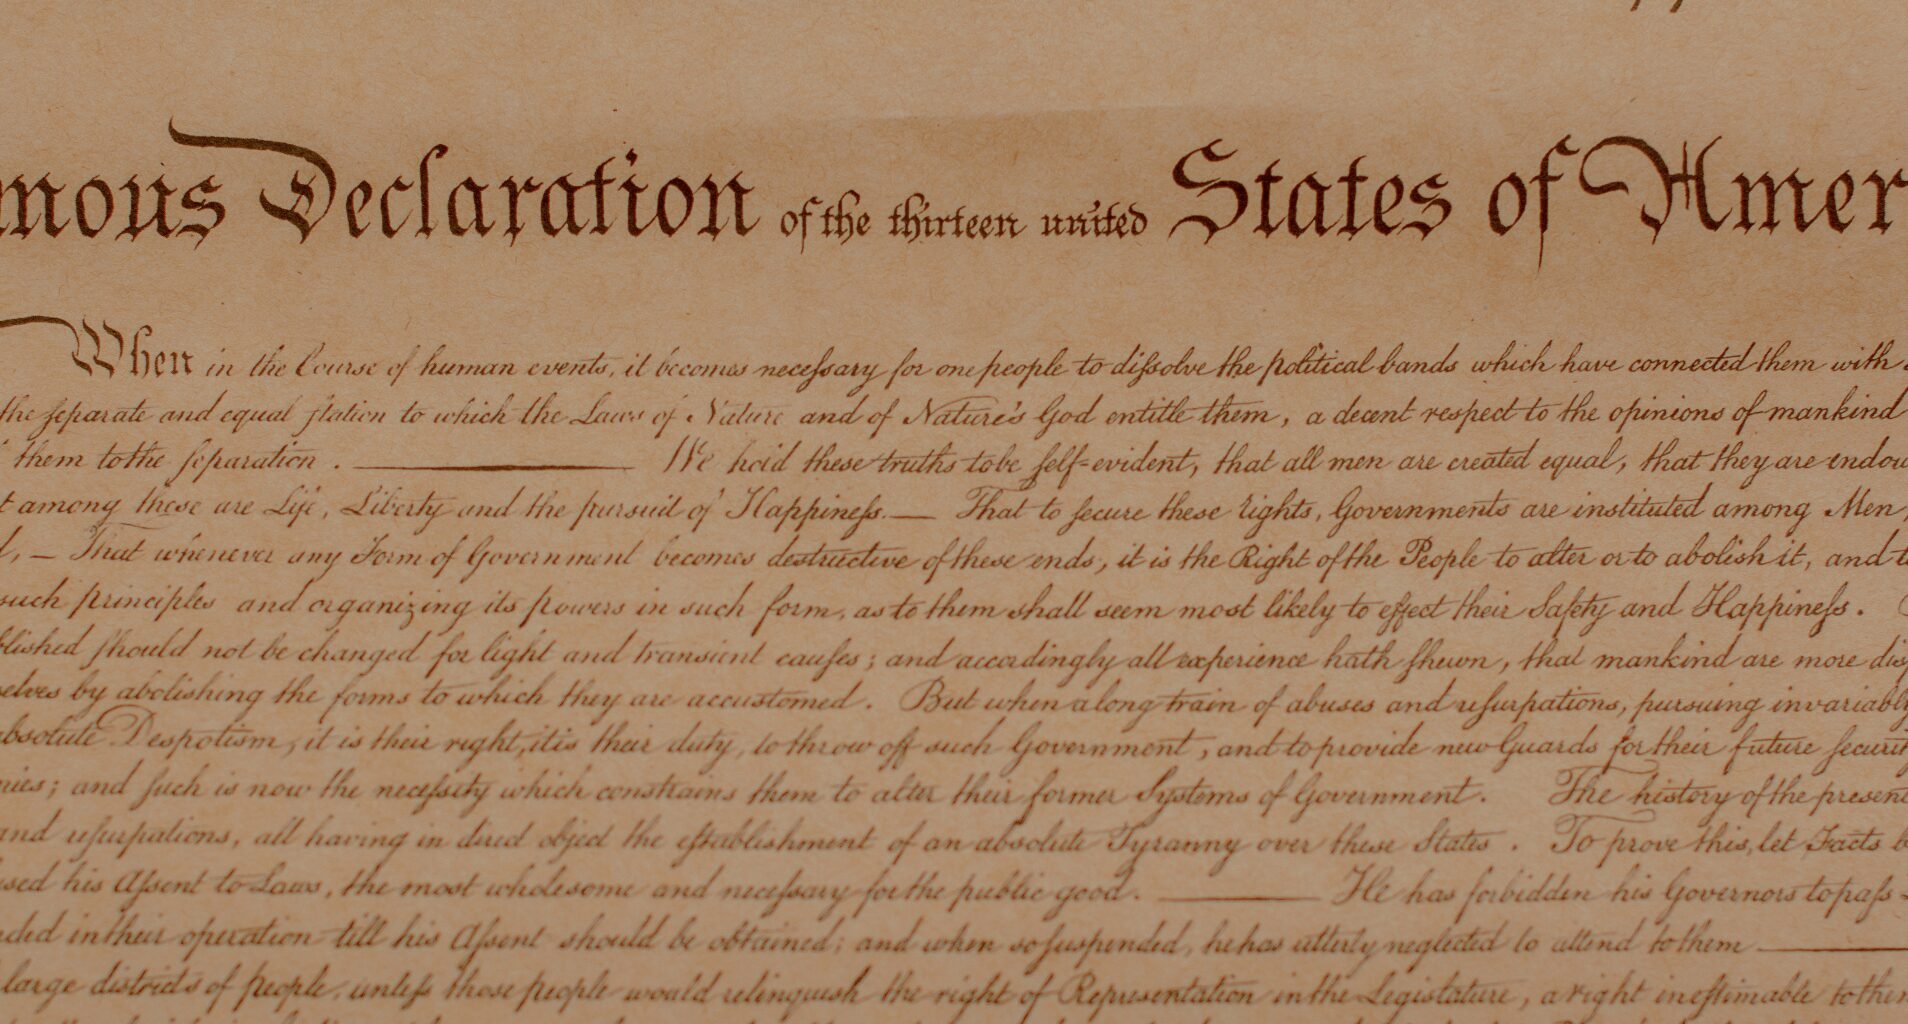 mous Declaration of the thirteen united States of Amer
When in the Course of human events, it becomes neceſsary for one people to diſsolve the political bands which have connected them with
the ſeparate and equal ſtation to which the Laws of Nature and of Nature's God entitle them, a decent respect to the opinions of mankind
them to the ſeparation. — We hold these truths to be ſelf-evident, that all men are created equal, that they are endow
t among these are Life, Liberty and the pursuit of Happineſs. — That to ſecure these rights, Governments are instituted among Men,
d, — That whenever any Form of Government becomes destructive of these ends, it is the Right of the People to alter or to abolish it, and to
such principles and organizing its powers in such form, as to them shall seem most likely to effect their Safety and Happineſs.
bliſhed ſhould not be changed for light and transient cauſes; and accordingly all experience hath ſhewn, that mankind are more diſp
selves by aboliſhing the forms to which they are accustomed. But when a long train of abuses and uſurpations, pursuing invariably
absolute Despotism, it is their right, it is their duty, to throw off such Government, and to provide new Guards for their future ſecurit
nies; and ſuch is now the neceſsity which constrains them to alter their former Systems of Government. The history of the present
and uſurpations, all having in direct object the eſtablishment of an absolute Tyranny over these States. To prove this, let Facts b
used his Aſsent to Laws, the most wholesome and neceſsary for the public good. — He has forbidden his Governors to paſs
nded in their operation till his Aſsent should be obtained; and when so ſuspended, he has utterly neglected to attend to them —
large districts of people, unleſs those people would relinquish the right of Representation in the Legislature, a right ineſtimable to them